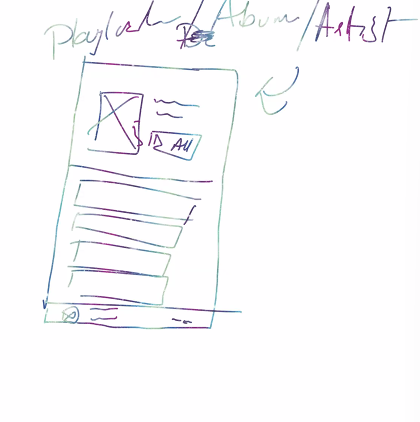 Playlist / Album / Artist
All